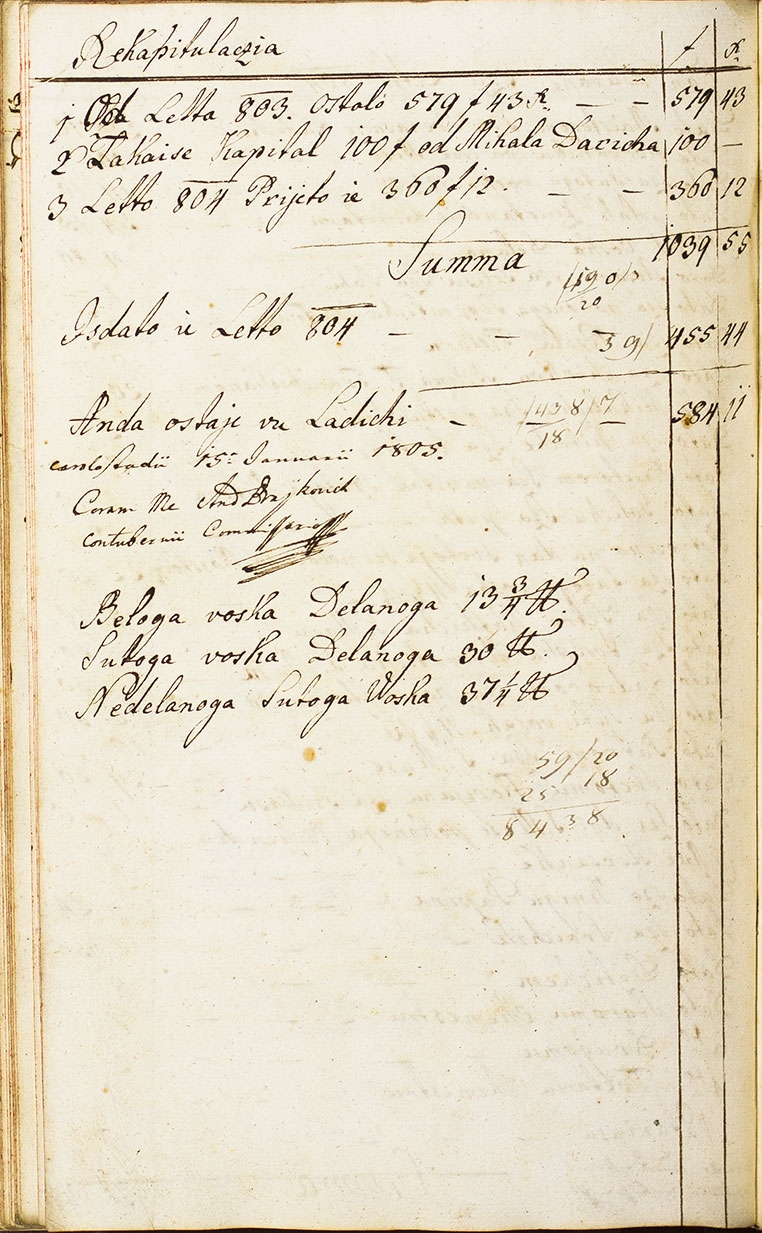 Rekapitulaczia f x
1 Od Letta 803. ostalo 579 f 43 x. — — 579 43
2 Takaise Kapital 100 f od Mihala Dacicha 100 —
3 Letto 804 Prijeto ie 360 f 12. — — 360 12
Summa 1039 55
20
Isdato ie Letto 804 — — 39 455 44
Anda ostaje vu Ladichi — 438/7 — 584 11
18
Carlostadii 15 Januarii 1805.
Coram Me And
Contubernii Commissario
Beloga voska Delanoga 13 3/4 ℔.
Sutoga voska Delanoga 30 ℔.
Nedelanoga Sutoga Voska 37 1/4 ℔
59/20
25 18
84 38